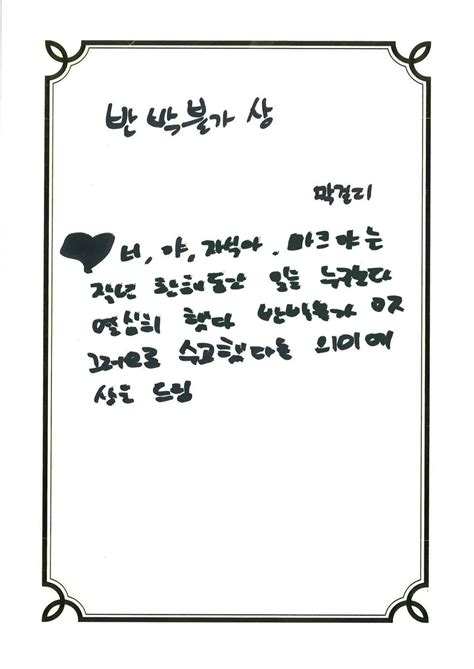 반박불가 상
막걸리
너, 야, 자식아. 마크 야는
작년 한해동안 일을 누구보다
열심히 했다 반박불가 인정
그러므로 수고했다는 의미에
상을 드림